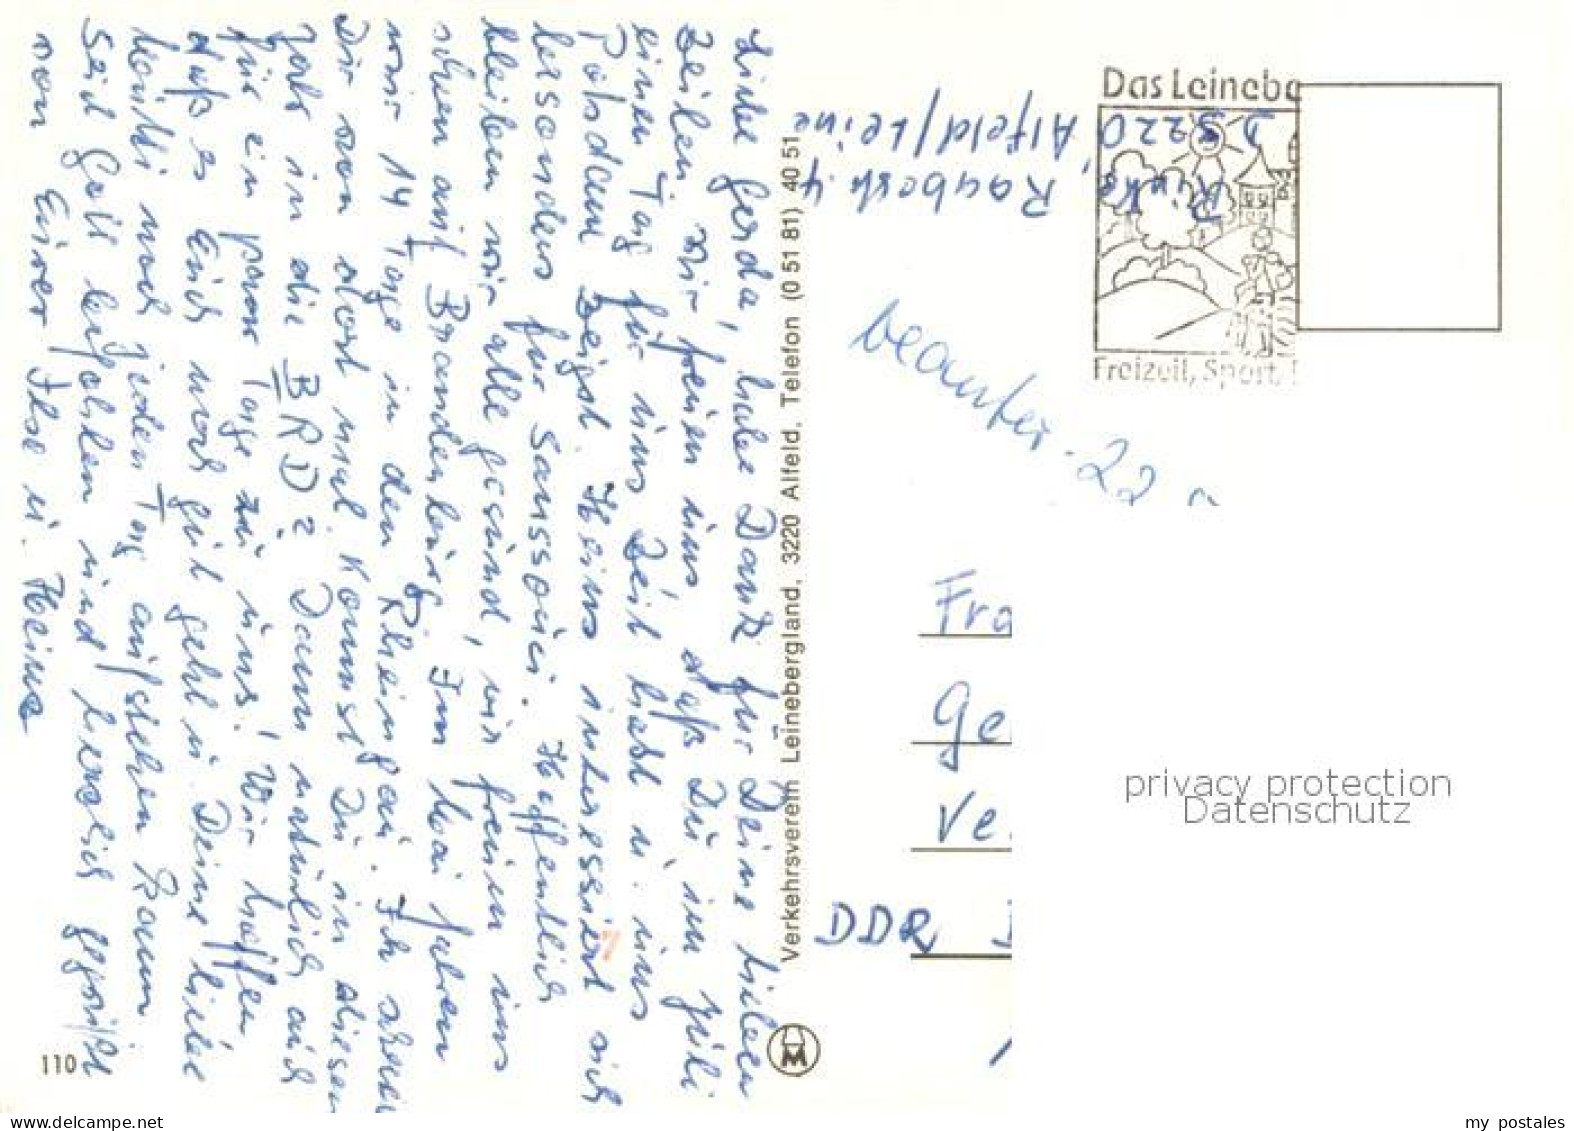 Liebe Gerda, habe Dank für Deine lieben
Zeilen. Wir freuen uns, daß Du im Juli
einen Tag für uns Zeit hast u. uns
Potsdam zeigst. Heinz interessiert sich
besonders für Sanssouci. Hoffentlich
bleiben wir alle gesund, wir freuen uns
schon auf Brandenburg. Im Mai fahren
wir 14 Tage in den Rheingau. Ich schreibe
Dir von dort mal. Kommst Du in diesem
Jahr in die BRD? Dann natürlich auch
für ein paar Tage zu uns! Wir hoffen,
daß es Euch noch gut geht u. Deine liebe
Mutti noch jeden Tag aufstehen kann.
Seid Gott befohlen und herzlich gegrüßt
von Eurer Ilse u. Heinz
110
Verkehrsverein Leinebergland, 3220 Alfeld, Telefon (0 51 81) 40 51
M
Rinke, Raabestr. 4
D 3220 Alfeld/Leine
Das Leinebe
Freizeit, Sport,
beantw. 22
Fra
Ge
Ve
DDR
privacy protection
Datenschutz
my postales